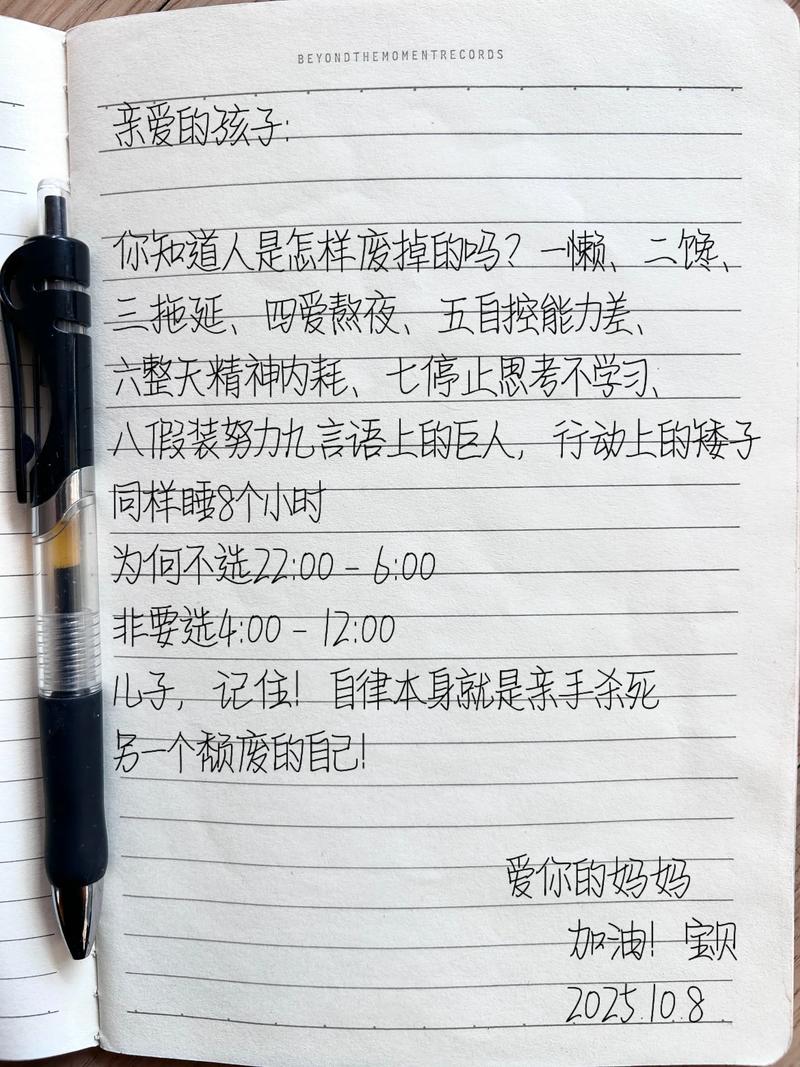 BEYONDTHEMOMENTRECORDS
亲爱的孩子:
你知道人是怎样废掉的吗？一懒、二馋、
三拖延、四爱熬夜、五自控能力差、
六整天精神内耗、七停止思考不学习、
八假装努力九言语上的巨人，行动上的矮子
同样睡8个小时
为何不选22:00-6:00
非要选4:00-12:00
儿子，记住！自律本身就是亲手杀死
另一个颓废的自己！
爱你的妈妈
加油！宝贝
2025.10.8